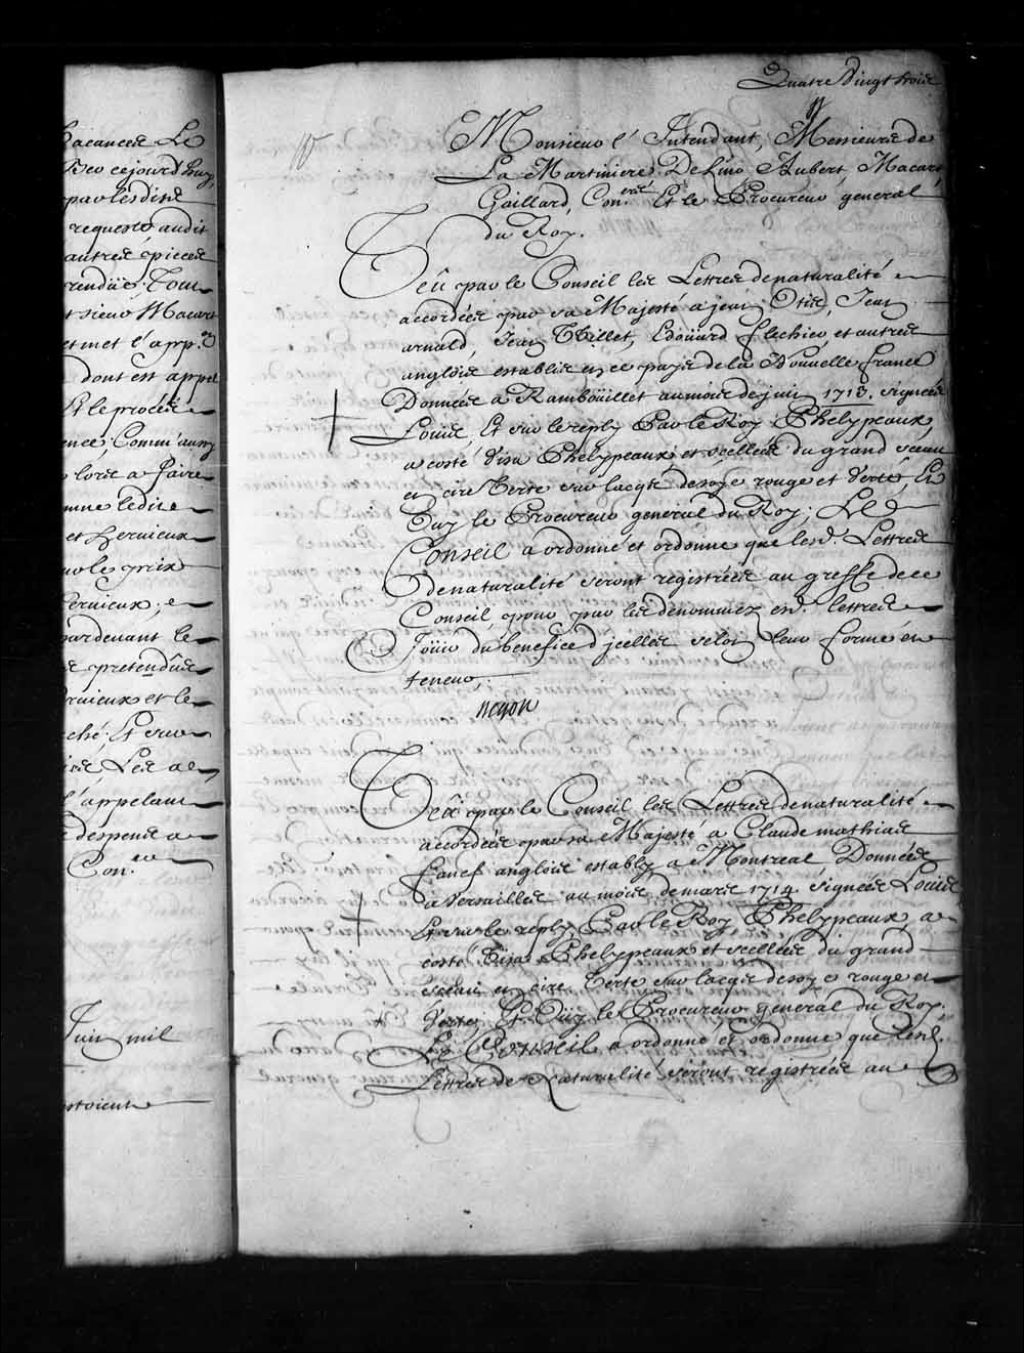 vacances Le
Veu cejourd'huy
par lesdits
requeste audit
autres épices
rendüe Tou
sieur Macart
et met l'app.on
dont est appel
Et le procés
Comm'aussy
lors a faire
ledit
et hervieux
le prix
hervieux, e
pardevant le
pretendûe
hervieux et le
ché. Et sur
Les a
l'appelant
despens a
Con.er
Juin mil
estoient
Quatre Vingt trois
Monsieur l'Intendant, Messieurs de
La Martiniere Delino Aubert, Macart,
Gaillard, Con.ers Et le Procureur general
du Roy.
Veû par le Conseil les Lettres de naturalité
accordées par sa Majesté a jean Otis, Jean
arnald, Jean Willet, Edoüard flechier, et autres
anglois establis en ce pays de la Nouvelle france
Données a Rambôüillet au mois de juin 1713. signées
Louis, Et sur le reply Par le Roy Phelypeaux,
a costé Visa Phelypeaux et scellées du grand sceau
en cire Verte sur lacqs de soye rouge et verte, Et
Oüy le Procureur general du Roy; Le
Conseil a ordonné et ordonne que lesd. Lettres
de naturalité seront registrées au greffe de ce
Conseil, pour par les dénommez esd. lettres
Joüir du benefice d'jcelles selon leur forme et
teneur,
Begon
Veû par le Conseil les Lettres de naturalité
accordées par sa Majesté a Claude mathias
fanef anglois estably a Montreal Données
a Versailles au mois de mars 1714 signées Louis
Et sur le reply Par le Roy Phelypeaux, a
costé Visa Phelypeaux et scellées du grand
sceau en cire Verte sur lacqs de soye rouge et
Verte, Et Oüy le Procureur general du Roy,
Le Conseil a ordonné et ordonne que lesd.
Lettres de Naturalité seront registrées au